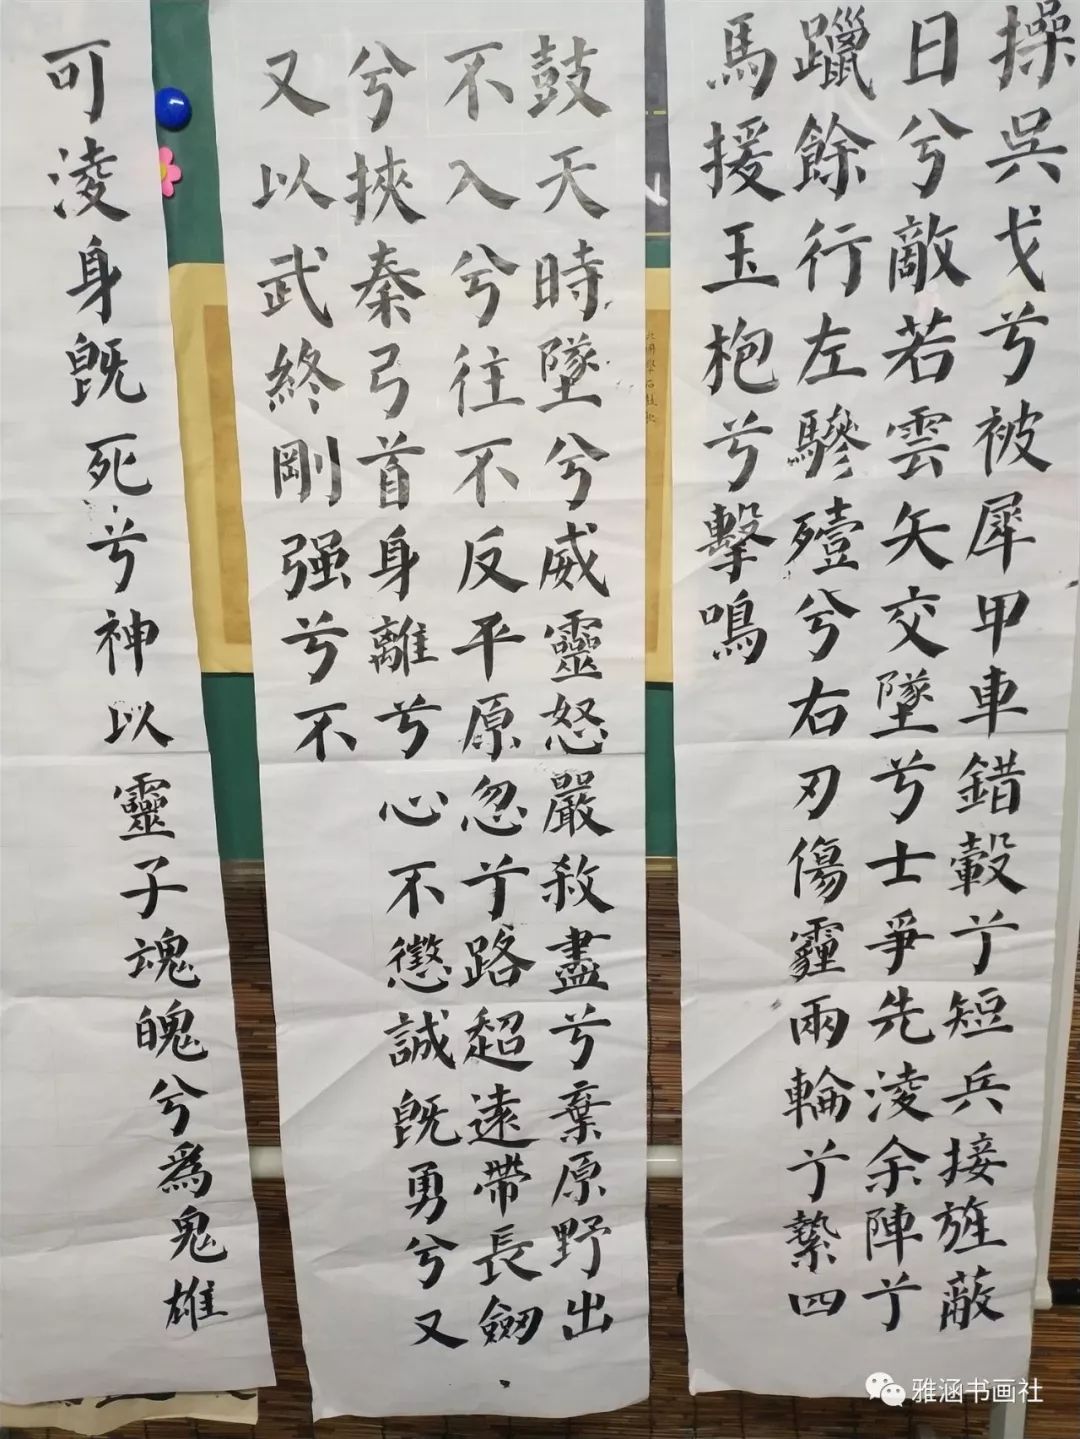 操吳戈兮被犀甲車錯轂兮短兵接旌蔽
日兮敵若雲矢交墜兮士爭先淩余陣兮
躐餘行左驂殪兮右刃傷霾兩輪兮縶四
馬援玉枹兮擊鳴
鼓天時墜兮威靈怒嚴殺盡兮棄原野出
不入兮往不反平原忽兮路超遠帶長劒
兮挾秦弓首身離兮心不懲誠既勇兮又
又以武終剛强兮不
可淩身既死兮神以靈子魂魄兮爲鬼雄
雅涵书画社